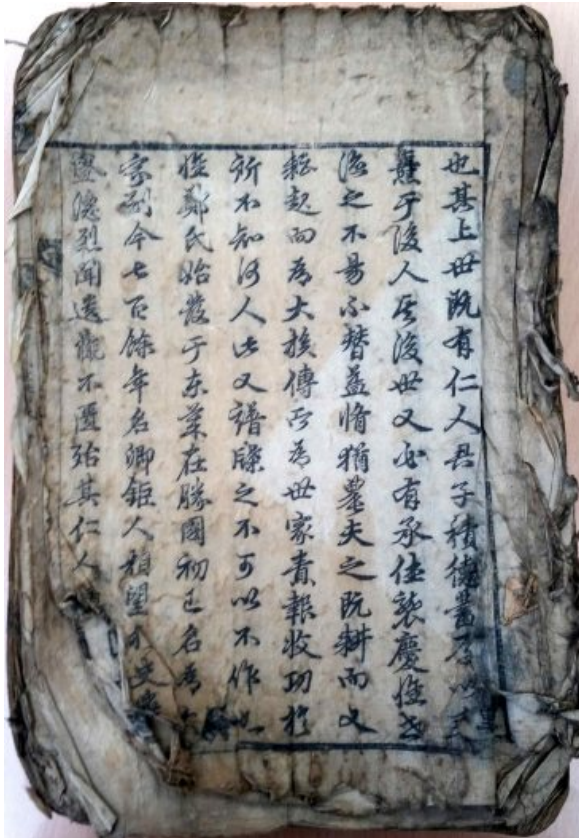 也其上世既有仁人君子積德蓄
于後人其後世又必有承佳襲慶惟
之不易不替益脩猶農夫之既耕而又
耘起而為大族傳所為世家責報收功於
所不知何人此又譜牒之不可以不作也
惟鄭氏始發于东萊在勝國初已名為
家到今七百餘年名卿鉅人相望不
德烈聞遺 不匱殆其仁人